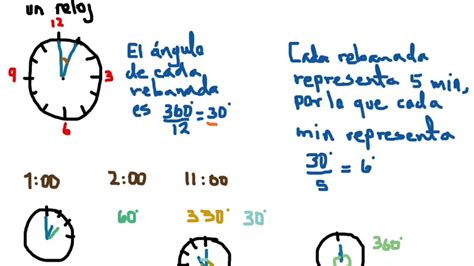 un reloj
12
9
3
6
El ángulo
de cada
rebanada
es 360°/12 = 30°
Cada rebanada
representa 5 min,
por lo que cada
min representa
30°/5 = 6°
1:00 2:00 11:00
60° 330° 30°
360°